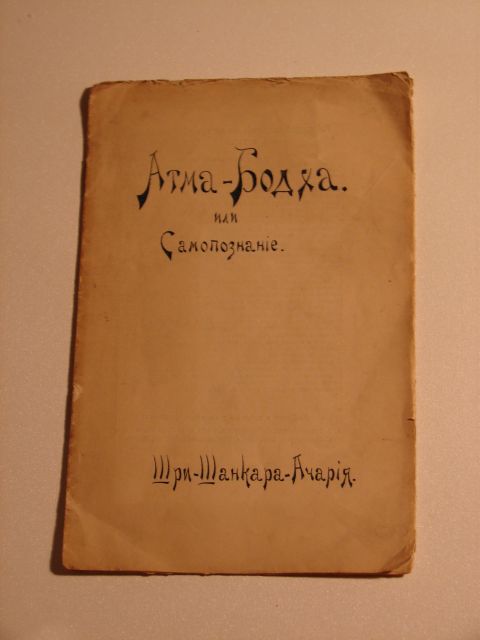 Атма-Бодха.
или
Самопознаніе.
Шри-Шанкара-Ачарія.